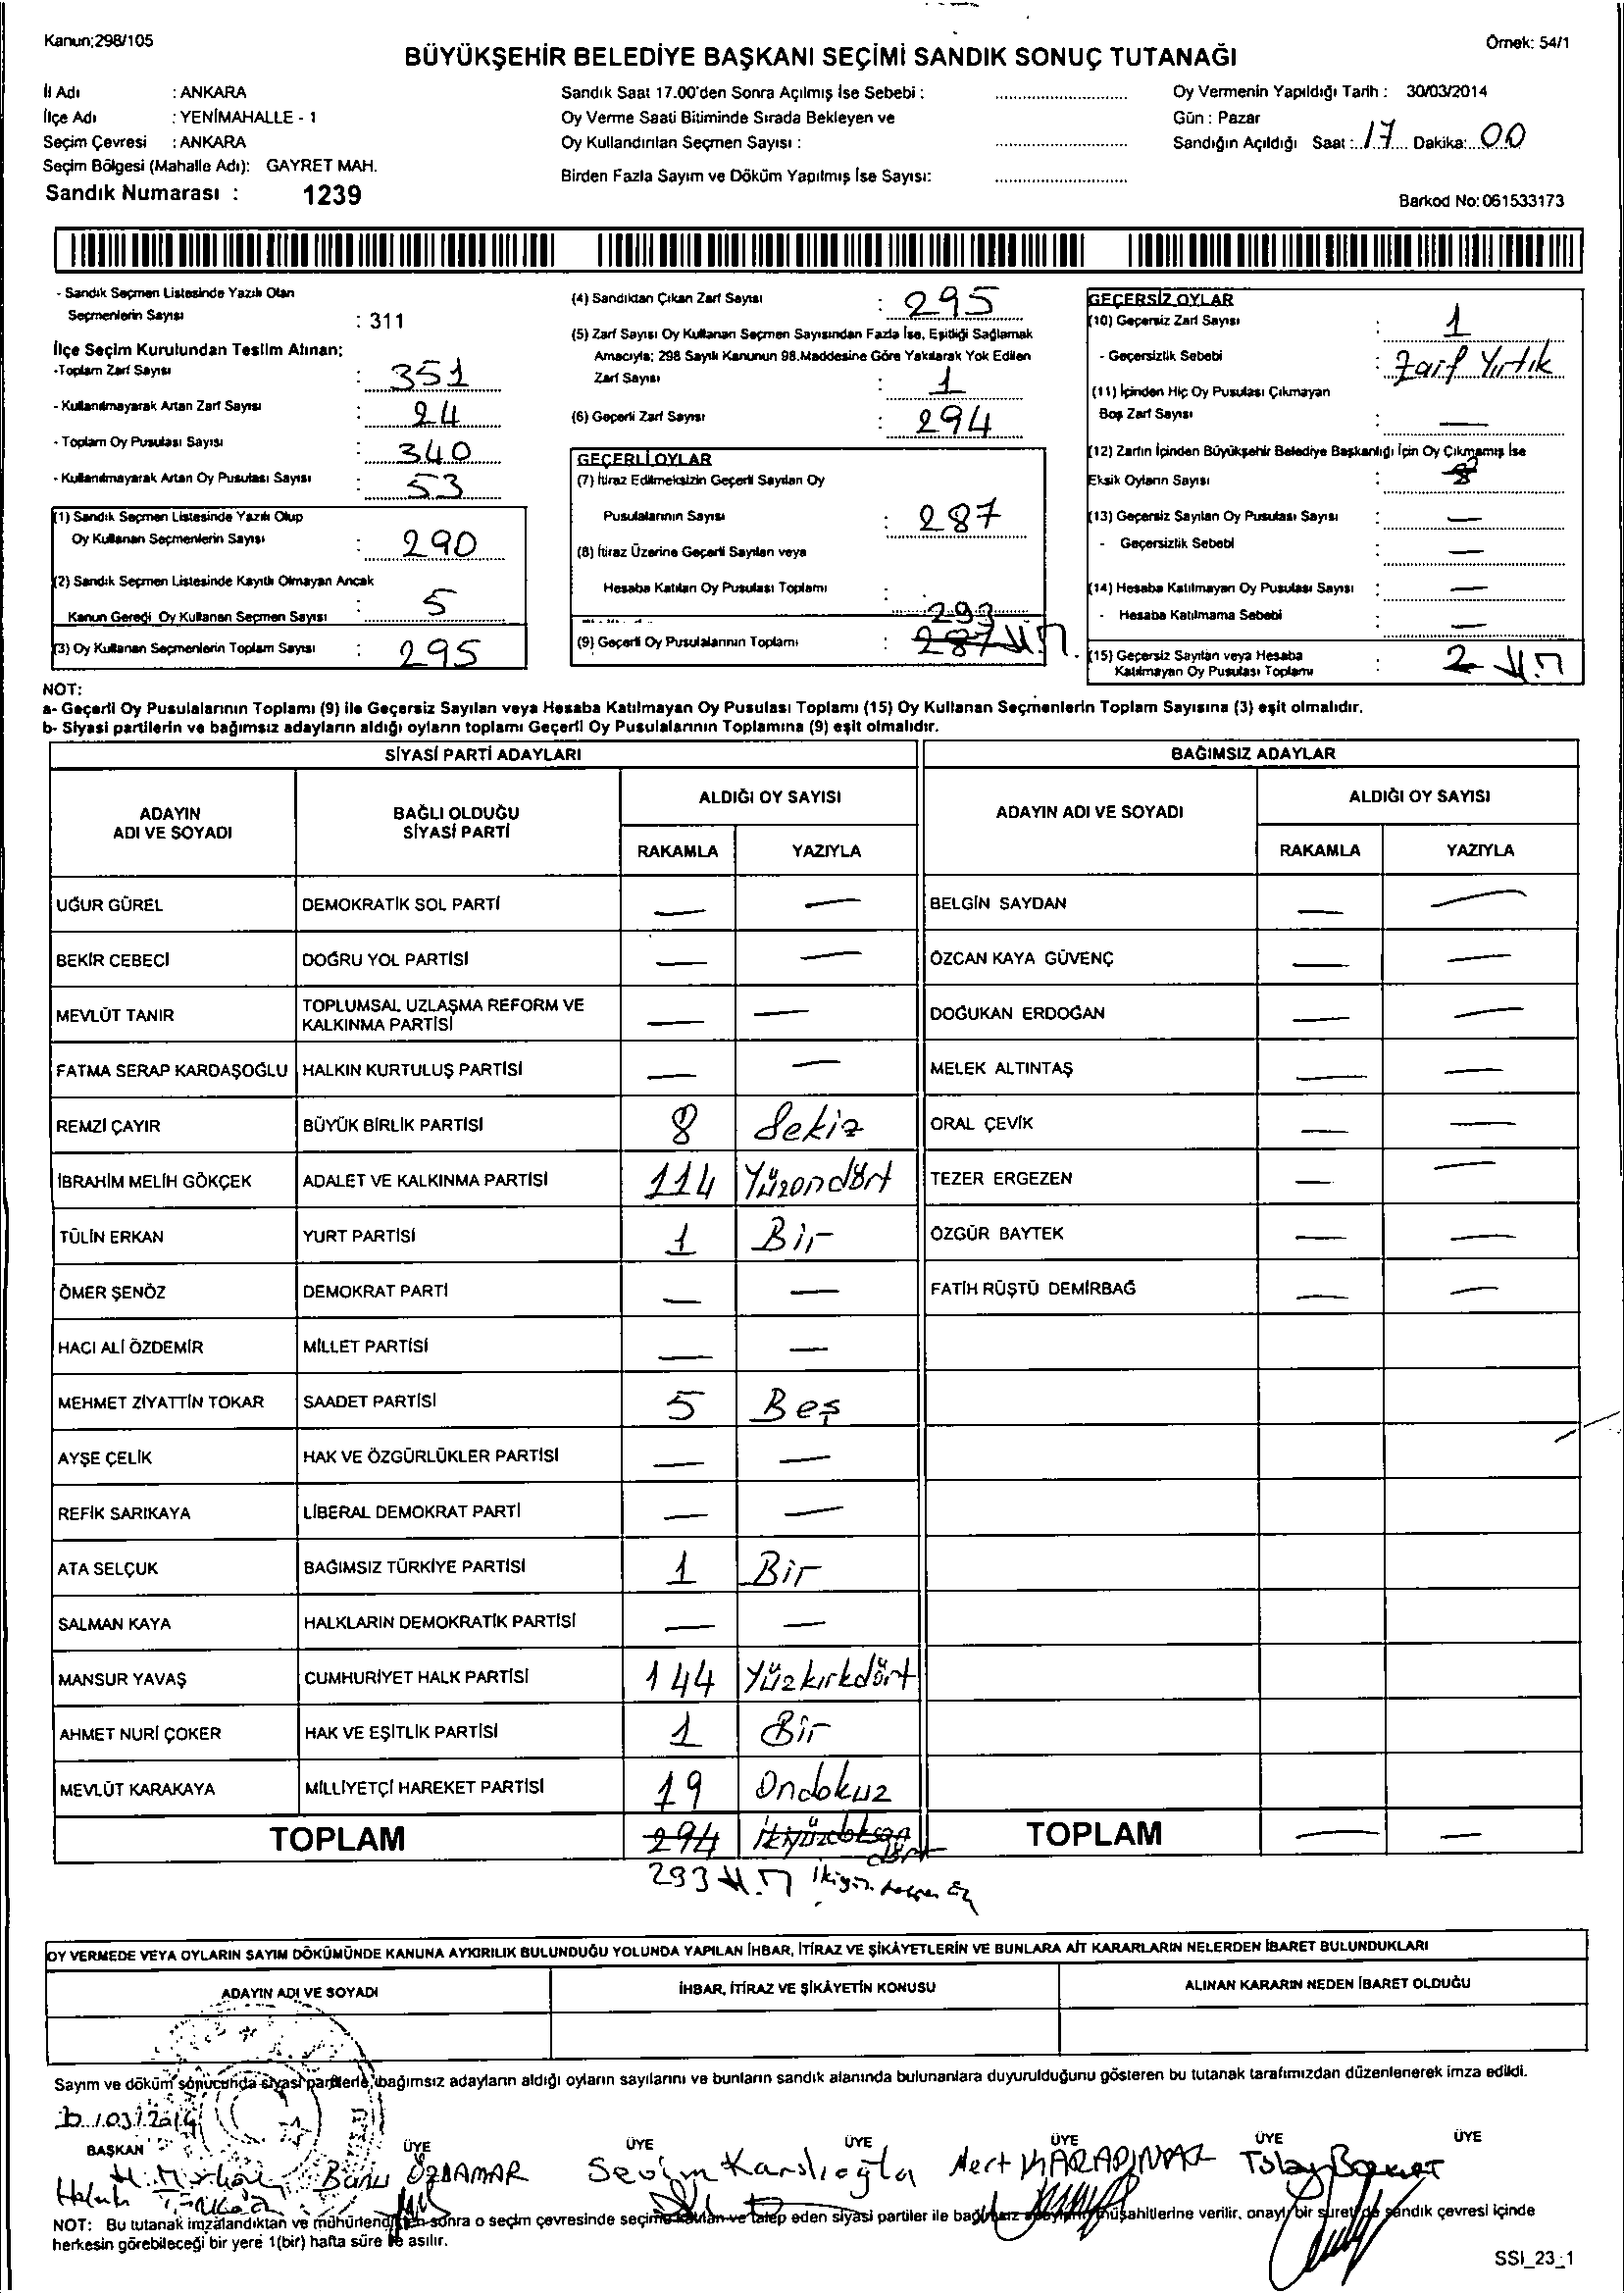 Kanun;298/105
Örnek: 54/1
BÜYÜKŞEHİR BELEDİYE BAŞKANI SEÇİMİ SANDIK SONUÇ TUTANAĞI
İl Adı : ANKARA
İlçe Adı : YENİMAHALLE - 1
Seçim Çevresi : ANKARA
Seçim Bölgesi (Mahalle Adı): GAYRET MAH.
Sandık Numarası : 1239
Sandık Saat 17.00'den Sonra Açılmış İse Sebebi :
Oy Verme Saati Bitiminde Sırada Bekleyen ve
Oy Kullandırılan Seçmen Sayısı :
Birden Fazla Sayım ve Döküm Yapılmış İse Sayısı:
Oy Vermenin Yapıldığı Tarih : 30/03/2014
Gün : Pazar
Sandığın Açıldığı Saat : 17 Dakika: 00
Barkod No: 061533173
- Sandık Seçmen Listesinde Yazılı Olan
Seçmenlerin Sayısı : 311
İlçe Seçim Kurulundan Teslim Alınan;
-Toplam Zarf Sayısı : 351
- Kullanılmayarak Artan Zarf Sayısı : 24
- Toplam Oy Pusulası Sayısı : 340
- Kullanılmayarak Artan Oy Pusulası Sayısı : 53
(1) Sandık Seçmen Listesinde Yazılı Olup
Oy Kullanan Seçmenlerin Sayısı : 290
(2) Sandık Seçmen Listesinde Kayıtlı Olmayan Ancak
Kanun Gereği Oy Kullanan Seçmen Sayısı : 5
(3) Oy Kullanan Seçmenlerin Toplam Sayısı : 295
(4) Sandıktan Çıkan Zarf Sayısı : 295
(5) Zarf Sayısı Oy Kullanan Seçmen Sayısından Fazla İse, Eşitliği Sağlamak
Amacıyla; 298 Sayılı Kanunun 98.Maddesine Göre Yakılarak Yok Edilen
Zarf Sayısı : 1
(6) Geçerli Zarf Sayısı : 294
GEÇERLİ OYLAR
(7) İtiraz Edilmeksizin Geçerli Sayılan Oy
Pusulalarının Sayısı : 287
(8) İtiraz Üzerine Geçerli Sayılan veya
Hesaba Katılan Oy Pusulası Toplamı
293
(9) Geçerli Oy Pusulalarının Toplamı : 287
GEÇERSİZ OYLAR
(10) Geçersiz Zarf Sayısı : 1
- Geçersizlik Sebebi : Zarf Yırtık
(11) İçinden Hiç Oy Pusulası Çıkmayan
Boş Zarf Sayısı : —
(12) Zarfın İçinden Büyükşehir Belediye Başkanlığı İçin Oy Çıkmamış İse
Eksik Oyların Sayısı :
(13) Geçersiz Sayılan Oy Pusulası Sayısı : —
- Geçersizlik Sebebi : —
(14) Hesaba Katılmayan Oy Pusulası Sayısı : —
- Hesaba Katılmama Sebebi : —
(15) Geçersiz Sayılan veya Hesaba
Katılmayan Oy Pusulası Toplamı : 2
NOT:
a- Geçerli Oy Pusulalarının Toplamı (9) ile Geçersiz Sayılan veya Hesaba Katılmayan Oy Pusulası Toplamı (15) Oy Kullanan Seçmenlerin Toplam Sayısına (3) eşit olmalıdır.
b- Siyasi partilerin ve bağımsız adayların aldığı oyların toplamı Geçerli Oy Pusulalarının Toplamına (9) eşit olmalıdır.
SİYASİ PARTİ ADAYLARI
BAĞIMSIZ ADAYLAR
ADAYIN ADI VE SOYADI
BAĞLI OLDUĞU SİYASİ PARTİ
ALDIĞI OY SAYISI
RAKAMLA YAZIYLA
ADAYIN ADI VE SOYADI
ALDIĞI OY SAYISI
RAKAMLA YAZIYLA
UĞUR GÜREL DEMOKRATİK SOL PARTİ — — BELGİN SAYDAN — —
BEKİR CEBECİ DOĞRU YOL PARTİSİ — — ÖZCAN KAYA GÜVENÇ — —
MEVLÜT TANIR TOPLUMSAL UZLAŞMA REFORM VE KALKINMA PARTİSİ — — DOĞUKAN ERDOĞAN — —
FATMA SERAP KARDAŞOĞLU HALKIN KURTULUŞ PARTİSİ — — MELEK ALTINTAŞ — —
REMZİ ÇAYIR BÜYÜK BİRLİK PARTİSİ 8 Sekiz ORAL ÇEVİK — —
İBRAHİM MELİH GÖKÇEK ADALET VE KALKINMA PARTİSİ 114 Yüzondört TEZER ERGEZEN — —
TÜLİN ERKAN YURT PARTİSİ 1 Bir ÖZGÜR BAYTEK — —
ÖMER ŞENÖZ DEMOKRAT PARTİ — — FATİH RÜŞTÜ DEMİRBAĞ — —
HACI ALİ ÖZDEMİR MİLLET PARTİSİ — —
MEHMET ZİYATTİN TOKAR SAADET PARTİSİ 5 Beş
AYŞE ÇELİK HAK VE ÖZGÜRLÜKLER PARTİSİ — —
REFİK SARIKAYA LİBERAL DEMOKRAT PARTİ — —
ATA SELÇUK BAĞIMSIZ TÜRKİYE PARTİSİ 1 Bir
SALMAN KAYA HALKLARIN DEMOKRATİK PARTİSİ — —
MANSUR YAVAŞ CUMHURİYET HALK PARTİSİ 144 Yüzkırkdört
AHMET NURİ ÇOKER HAK VE EŞİTLİK PARTİSİ 1 Bir
MEVLÜT KARAKAYA MİLLİYETÇİ HAREKET PARTİSİ 19 Ondokuz
TOPLAM 294 İkiyüzdoksan dört TOPLAM — —
293
OY VERMEDE VEYA OYLARIN SAYIM DÖKÜMÜNDE KANUNA AYKIRILIK BULUNDUĞU YOLUNDA YAPILAN İHBAR, İTİRAZ VE ŞİKÂYETLERİN VE BUNLARA AİT KARARLARIN NELERDEN İBARET BULUNDUKLARI
ADAYIN ADI VE SOYADI İHBAR, İTİRAZ VE ŞİKÂYETİN KONUSU ALINAN KARARIN NEDEN İBARET OLDUĞU
Sayım ve döküm sonucunda siyasi partilerle, bağımsız adayların aldığı oyların sayılarını ve bunların sandık alanında bulunanlara duyurulduğunu gösteren bu tutanak tarafımızdan düzenlenerek imza edildi.
/03/2014
BAŞKAN ÜYE ÜYE ÜYE ÜYE ÜYE ÜYE
Banu ÖZDAMAR Sevim Karslıoğlu Mert KARAPINAR Tolay
NOT: Bu tutanak imzalandıktan ve mühürlendikten sonra o seçim çevresinde seçime katılan ve talep eden siyasi partiler ile bağımsız adayların müşahitlerine verilir, onaylı bir sureti de sandık çevresi içinde
herkesin görebileceği bir yere 1(bir) hafta süre ile asılır.
SSI_23_1